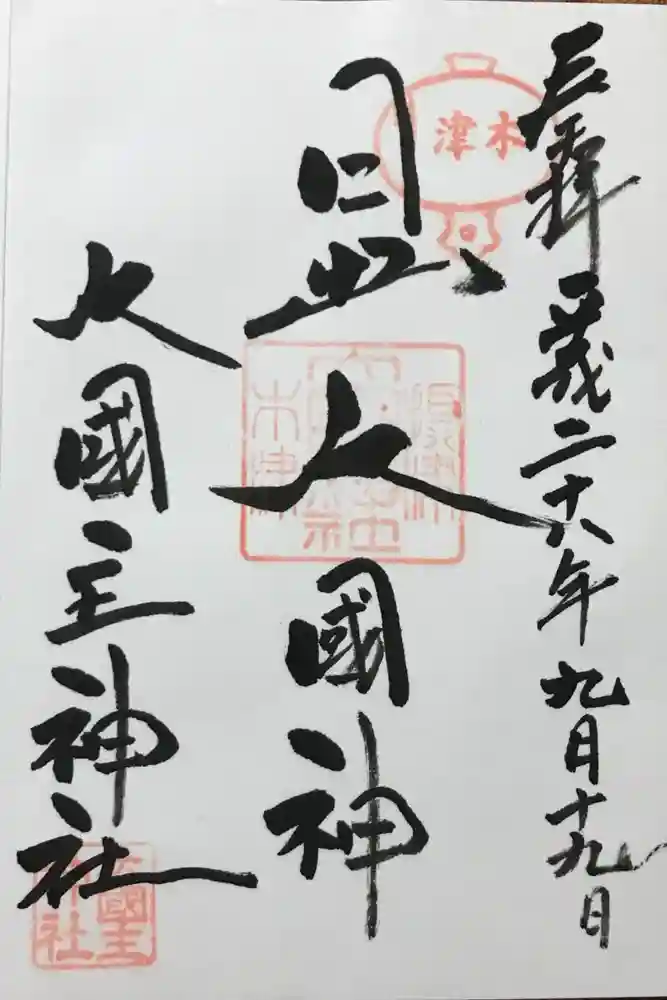 奉拝 平成二十八年九月十九日
木津
日出大國神
大國主神社
大國主神社